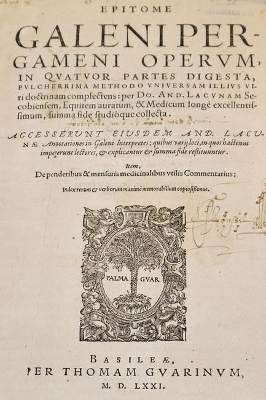 EPITOME
GALENI PER-
GAMENI OPERVM,
IN QVATVOR PARTES DIGESTA,
PVLCHERRIMA METHODO VNIVERSAM ILLIVS VI-
ri doctrinam complectens: per DO. AND. LACVNAM Se-
cobiensem, Equitem auratum, & Medicum longè excellentis-
simum, summa fide studióque collecta.
ACCESSERVNT EIVSDEM AND. LACV-
NÆ Annotationes in Galeni Interpretes: quibus varij loci, in quos hactenus
impegerunt lectores, & explicantur & summa fide restituuntur.
Item,
De ponderibus & mensuris medicinalibus vtilis Commentarius;
Indéx rerum & verborum
PALMA GVAR
BASILEÆ,
PER THOMAM GVARINVM,
M. D. LXXI.